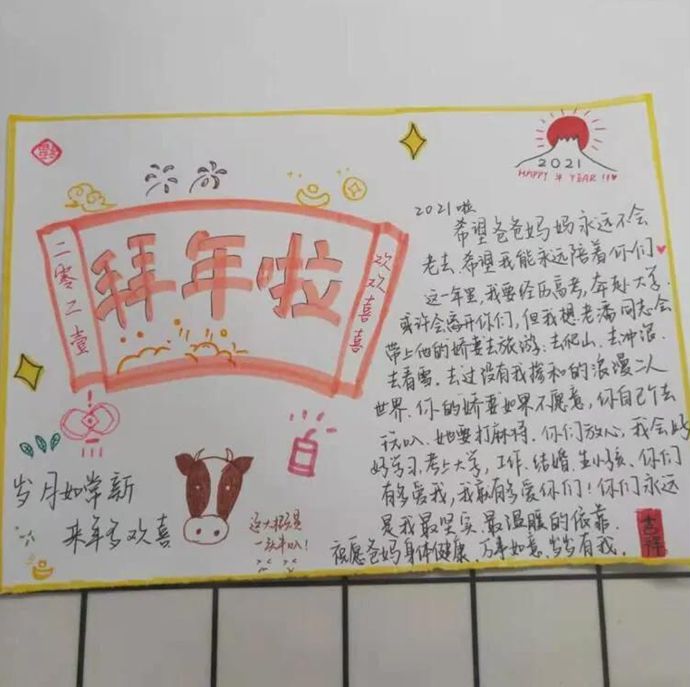 福
2021
HAPPY 牛 YEAR !!
二零二壹
拜年啦
欢欢喜喜
岁月如常新
来年多欢喜
2021啦
希望爸爸妈妈永远不会
老去、希望我能永远陪着你们
这一年里,我要经历高考,奔赴大学.
或许会离开你们,但我想老潘同志会
带上他的娇妻去旅游:去爬山、去冲浪.
去看雪、去过没有我掺和的浪漫二人
世界.你的娇妻如果不愿意,你自己个去
玩叭、她要打麻将.你们放心,我会好
好学习、考上大学,工作、结婚、生小孩、你们
有多爱我,我就有多爱你们!你们永远
是我最坚实、最温暖的依靠.
祝愿爸妈身体健康、万事如意、岁岁有我.
吉祥